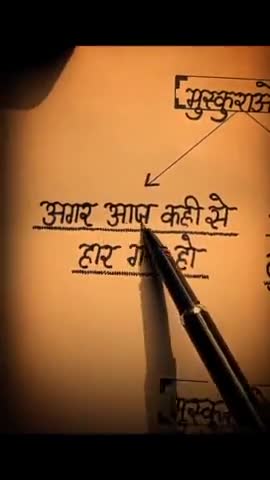 मुस्कुराओ
अगर आप कही से
हार गए हो
मुस्कु